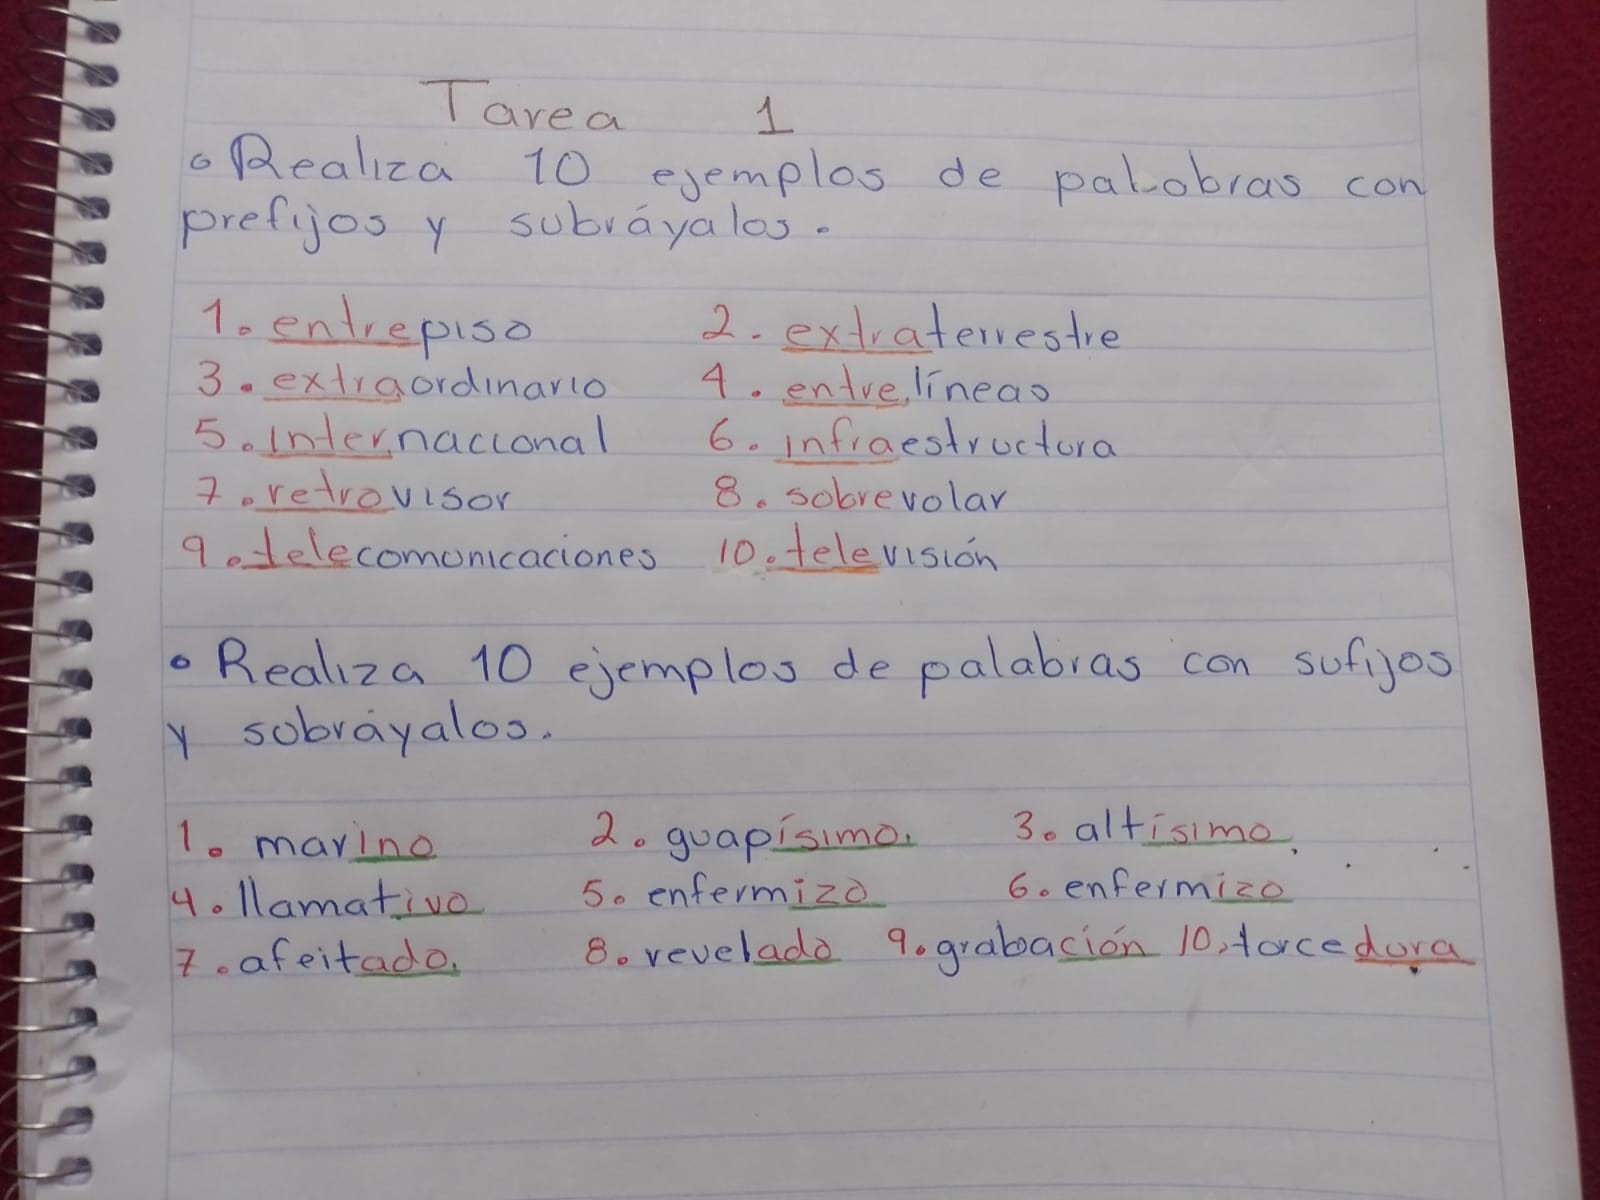 Tarea 1
• Realiza 10 ejemplos de palabras con
prefijos y subráyalos.
1. entrepiso 2. extraterrestre
3. extraordinario 4. entrelíneas
5. internacional 6. infraestructura
7. retrovisor 8. sobrevolar
9. telecomunicaciones 10. televisión
• Realiza 10 ejemplos de palabras con sufijos
y subráyalos.
1. marino 2. guapísimo. 3. altísimo
4. llamativo 5. enfermizo 6. enfermizo
7. afeitado. 8. revelado 9. grabación 10. torcedura